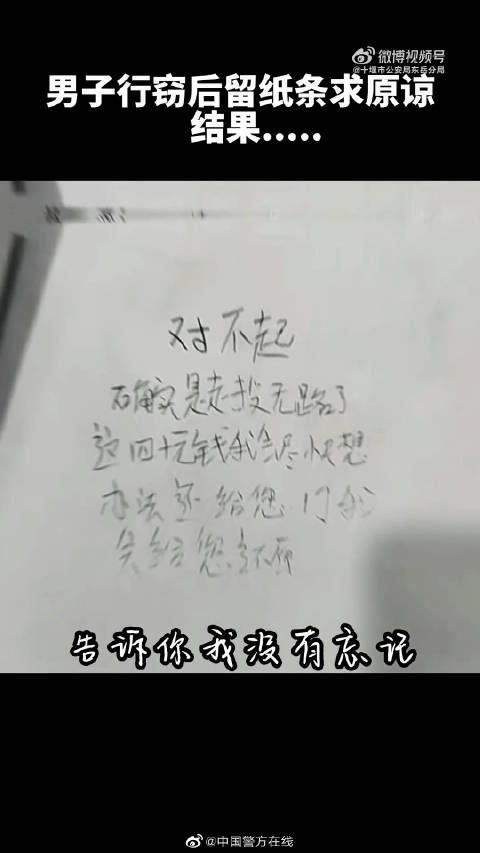 微博视频号
@十堰市公安局东岳分局
男子行窃后留纸条求原谅
结果.....
对不起
确实是走投无路了
这四十元钱我会尽快想
办法还给您 门我
给您
告诉你我没有忘记
@中国警方在线